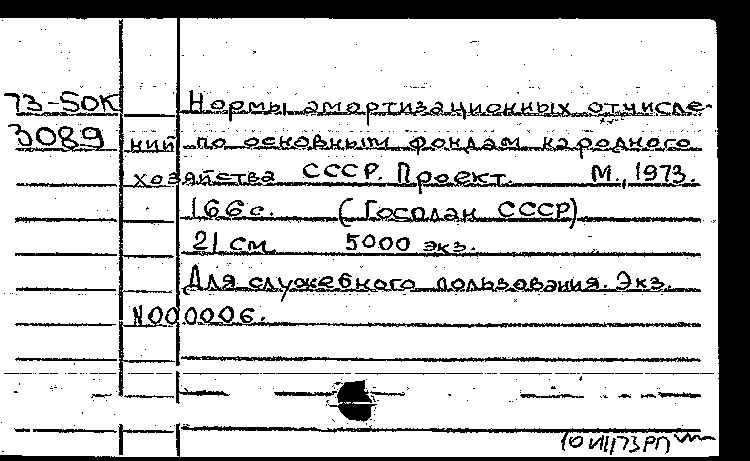 73-50К Нормы амортизационных отчисле-
3089 ний по основным фондам народного
хозяйства СССР. Проект. М., 1973.
166с. (Госплан СССР)
21 см 5000 экз.
Для служебного пользования. Экз.
N000006.